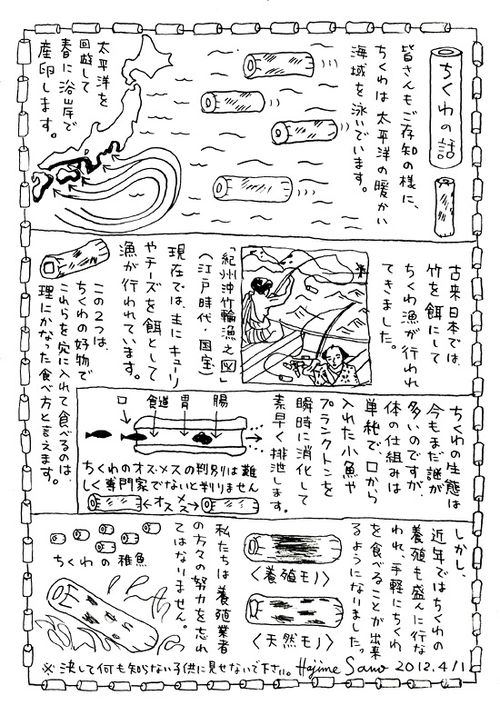 ちくわの話
皆さんもご存知の様に、
ちくわは太平洋の暖かい
海域を泳いでいます。
太平洋を
回遊して
春に沿岸で
産卵します。
古来日本では、
竹を餌にして
ちくわ漁が行われ
てきました。
「紀州沖竹輪漁之図」
(江戸時代・国宝)
現在では、主にキューリ
やチーズを餌として
漁が行われています。
この2つは、
ちくわの好物で
これらを穴に入れて食べるのは、
理にかなった食べ方と言えます。
ちくわの生態は
今もまだ謎が
多いのですが
体の仕組みは
単純で、口から
入れた小魚や
プランクトンを
瞬時に消化して
素早く排泄します。
口 食道 胃 腸
ちくわのオス・メスの判別は難
しく専門家でないと判りません
←オス メス→
しかし、
近年ではちくわの
養殖も盛んに行な
われ、手軽にちくわ
を食べることが出来
るようになりました。
〈養殖モノ〉
〈天然モノ〉
私たちは養殖業者
の方々の努力を忘れ
てはなりません。
ちくわの稚魚
※決して何も知らない子供に見せないで下さい。 Hajime Sano 2012.4/1